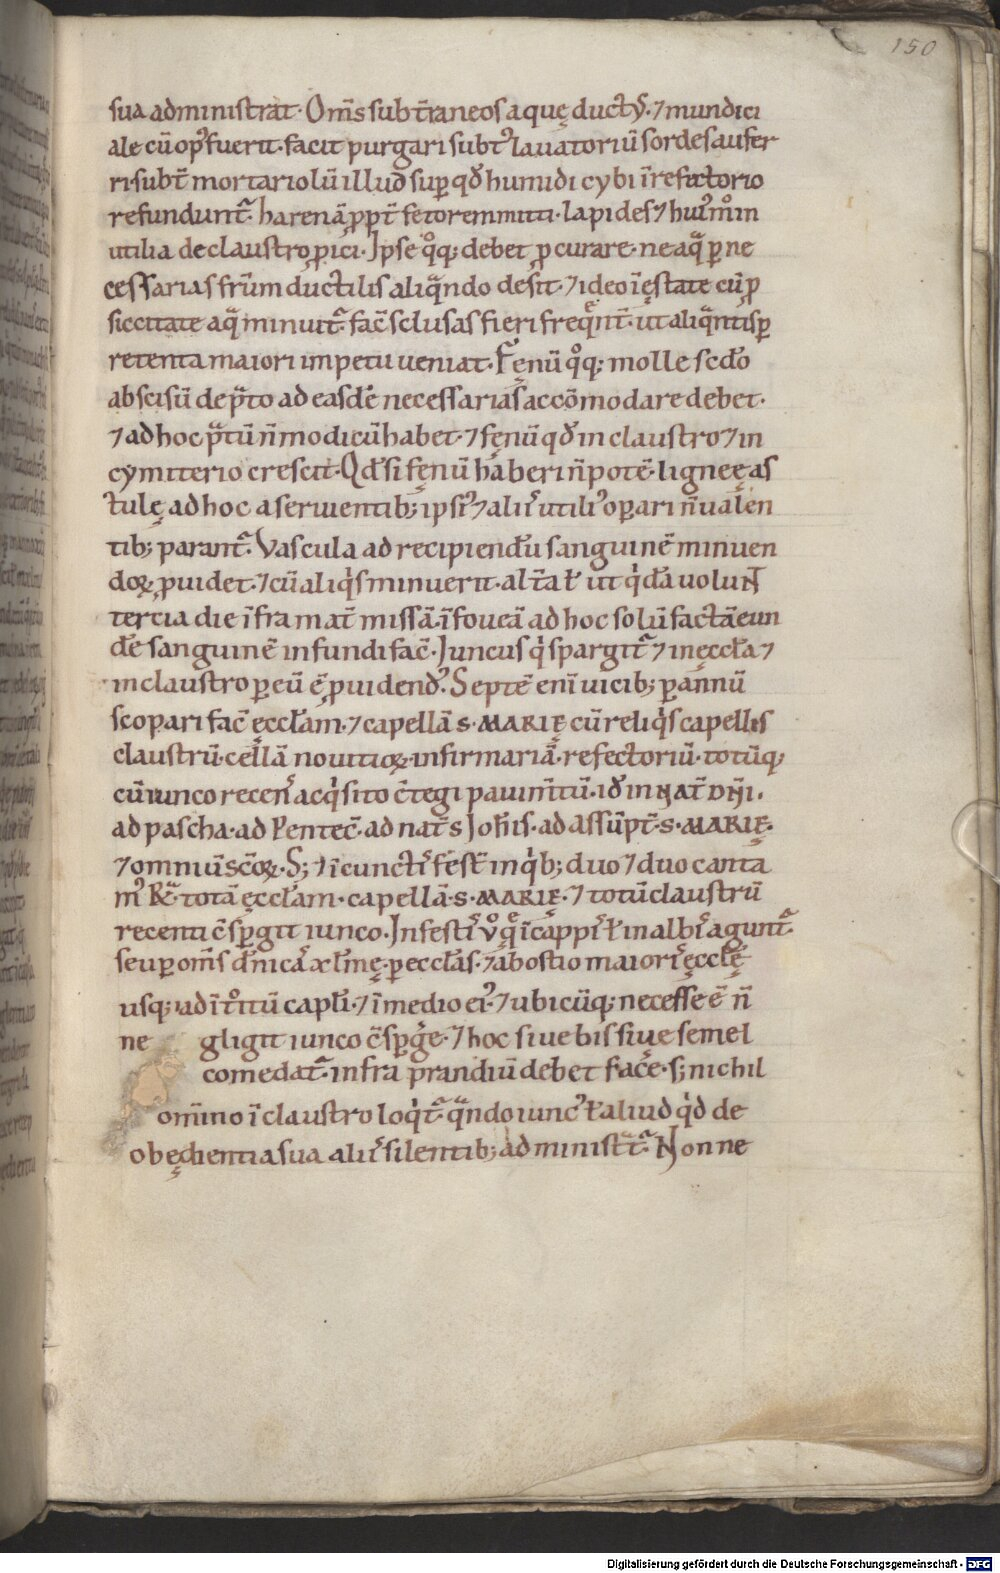 150
sua administrat. Om̅s subt̅raneos aquę duct9. ⁊ mundici
ale cū op9 fuerit. facit purgari subt9 lauatoriū sordes aufer
ri subt̅ mortariolū illud sup̱ qd̄ humidi cybi ī refectorio
refundunt̅. harenā ꝓpt̅ fetorem mitti. lapides ⁊ hui9mōi in
utilia de claustro ꝓici. Ipse qͦq; debet ꝓcurare. ne aq̄ ꝑ ne
cessarias fr̄um ductilis aliqᵃndo desit. ⁊ ideo ī ęstate cū ꝓ
siccitate aqᵃ minuit̅. fac̄ sclusas fieri freq̄nt̅. ut aliqᵃntisꝑ
retenta maiori impetu ueniat. Fęnū qͦq; molle scd̄o
abscisū de pᵃto ad easdē necessarias accōmodare debet.
⁊ ad hoc pᵃtū n̄ modicū habet. ⁊ fęnū qd̄ in claustro ⁊ in
cymiterio crescit. Qd̄ si fęnū haberi n̄ potē. ligneę as
tulę ad hoc a seruientib; ipsi9 ⁊ aliis utili9 oꝑari n̄ ualen
tib; parant̅. Vascula ad recipiendū sanguinē minuen
doꝝ ꝓuidet. ⁊ cū aliqͥs minuerit. alt̄a ł ut qͥdā uolunt
tercia die īfra mat̅ missā. ī foueā ad hoc solū factā eun
dē sanguinē infundi fac̄. Iuncus qͥ spargit̅ ⁊ in ęccła ⁊
in claustro ꝑ eū ē ꝓuidend9. Septē enī uicib; ꝑ annū
scopari fac̄ ęccłam. ⁊ capellā s. MARIĘ cū reliqͥs capellis
claustrū. cellā nouitioꝝ. infirmariā. refectoriū. totūq;
cū iunco recenť acqͥsito c̄tegi pauim̅tū. id̄ in nat̅ dn̄i.
ad pascha. ad Pentec̄. ad nat̅ s Ioh̄is. ad assūpt̅. s. MARIĘ.
⁊ omniū sc̄oꝝ. S; ⁊ ī cunctis fest̅ in qͥb; duo ⁊ duo canta
m9 R̄. totā ęccłam. capellā. s. MARIĘ. ⁊ totū claustrū
recenti c̄sꝑgit iunco. In festis ū q̄ ī cappis ł in albis agunt̅.
seu ꝑ om̅s dn̄icas xl̄mę. ꝑ eccłas. ⁊ ab ostio maioris ęccłę
usq; ad ītͦitū capłi. ⁊ ī medio ei9. ⁊ ubicūq; necesse ē n̄
ne gligit iunco c̄sꝑge. ⁊ hoc siue bis siue semel
comedat̅. infra prandiū debet facē. s; nichil
om̅ino ī claustro loqͥt̅. qᵃndo iunc9 ł aliud qͥd de
obędientia sua aliis silentib; administ̅t̅. Non ne
Digitalisierung gefördert durch die Deutsche Forschungsgemeinschaft - DFG